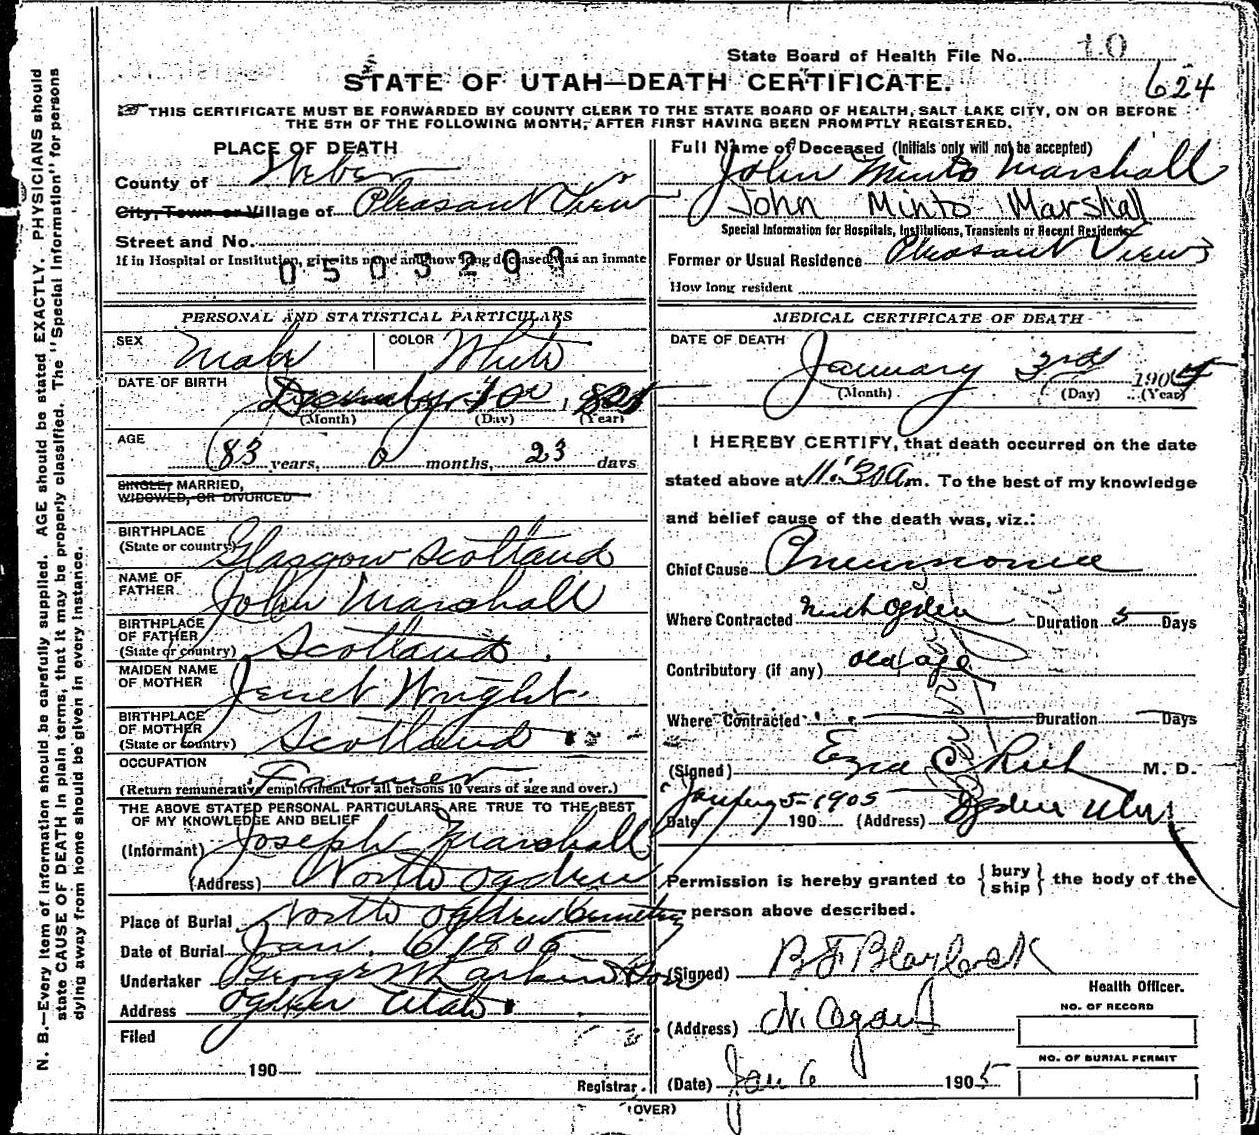 State Board of Health File No. 10
624
STATE OF UTAH—DEATH CERTIFICATE.
THIS CERTIFICATE MUST BE FORWARDED BY COUNTY CLERK TO THE STATE BOARD OF HEALTH, SALT LAKE CITY, ON OR BEFORE
THE 5TH OF THE FOLLOWING MONTH, AFTER FIRST HAVING BEEN PROMPTLY REGISTERED.
PLACE OF DEATH
County of Weber
City, Town or Village of Pleasant View
Street and No.
If in Hospital or Institution, give its name and how long deceased was an inmate
0503209
Full Name of Deceased (Initials only will not be accepted)
John Minto Marshall
John Minto Marshall
Special Information for Hospitals, Institutions, Transients or Recent Residents
Former or Usual Residence Pleasant View
How long resident
PERSONAL AND STATISTICAL PARTICULARS
SEX Male COLOR White
DATE OF BIRTH
(Month) (Day) (Year)
AGE 83 years, 0 months, 23 days
SINGLE, MARRIED,
WIDOWED, OR DIVORCED
BIRTHPLACE
(State or country) Glasgow Scotland
NAME OF
FATHER John Marshall
BIRTHPLACE
OF FATHER
(State or country) Scotland
MAIDEN NAME
OF MOTHER Jenet Wright
BIRTHPLACE
OF MOTHER
(State or country) Scotland
OCCUPATION Farmer
(Return remunerative employment for all persons 10 years of age and over.)
THE ABOVE STATED PERSONAL PARTICULARS ARE TRUE TO THE BEST
OF MY KNOWLEDGE AND BELIEF
(Informant) Joseph Marshall
(Address) North Ogden
Place of Burial North Ogden Cemetery
Date of Burial Jan. 6 1905
Undertaker George W Larkin & Son
Address Ogden Utah
Filed
190
Registrar.
MEDICAL CERTIFICATE OF DEATH
DATE OF DEATH
January 3rd 190
(Month) (Day) (Year)
I HEREBY CERTIFY, that death occurred on the date
stated above at 11:30 A m. To the best of my knowledge
and belief cause of the death was, viz.:
Chief Cause Pneumonia
Where Contracted North Ogden Duration 5 Days
Contributory (if any) old age
Where Contracted Duration Days
(Signed) Ezra C Rich M. D.
January 5-1905
Date 190 (Address) Ogden Utah
Permission is hereby granted to {bury ship} the body of the
person above described.
(Signed) B F Blaylock
Health Officer.
(Address) N. Ogden
NO. OF RECORD
NO. OF BURIAL PERMIT
(Date) Jan 6 1905
(OVER)
N. B.—Every item of information should be carefully supplied. AGE should be stated EXACTLY. PHYSICIANS should
state CAUSE OF DEATH in plain terms, that it may be properly classified. The "Special Information" for persons
dying away from home should be given in every instance.